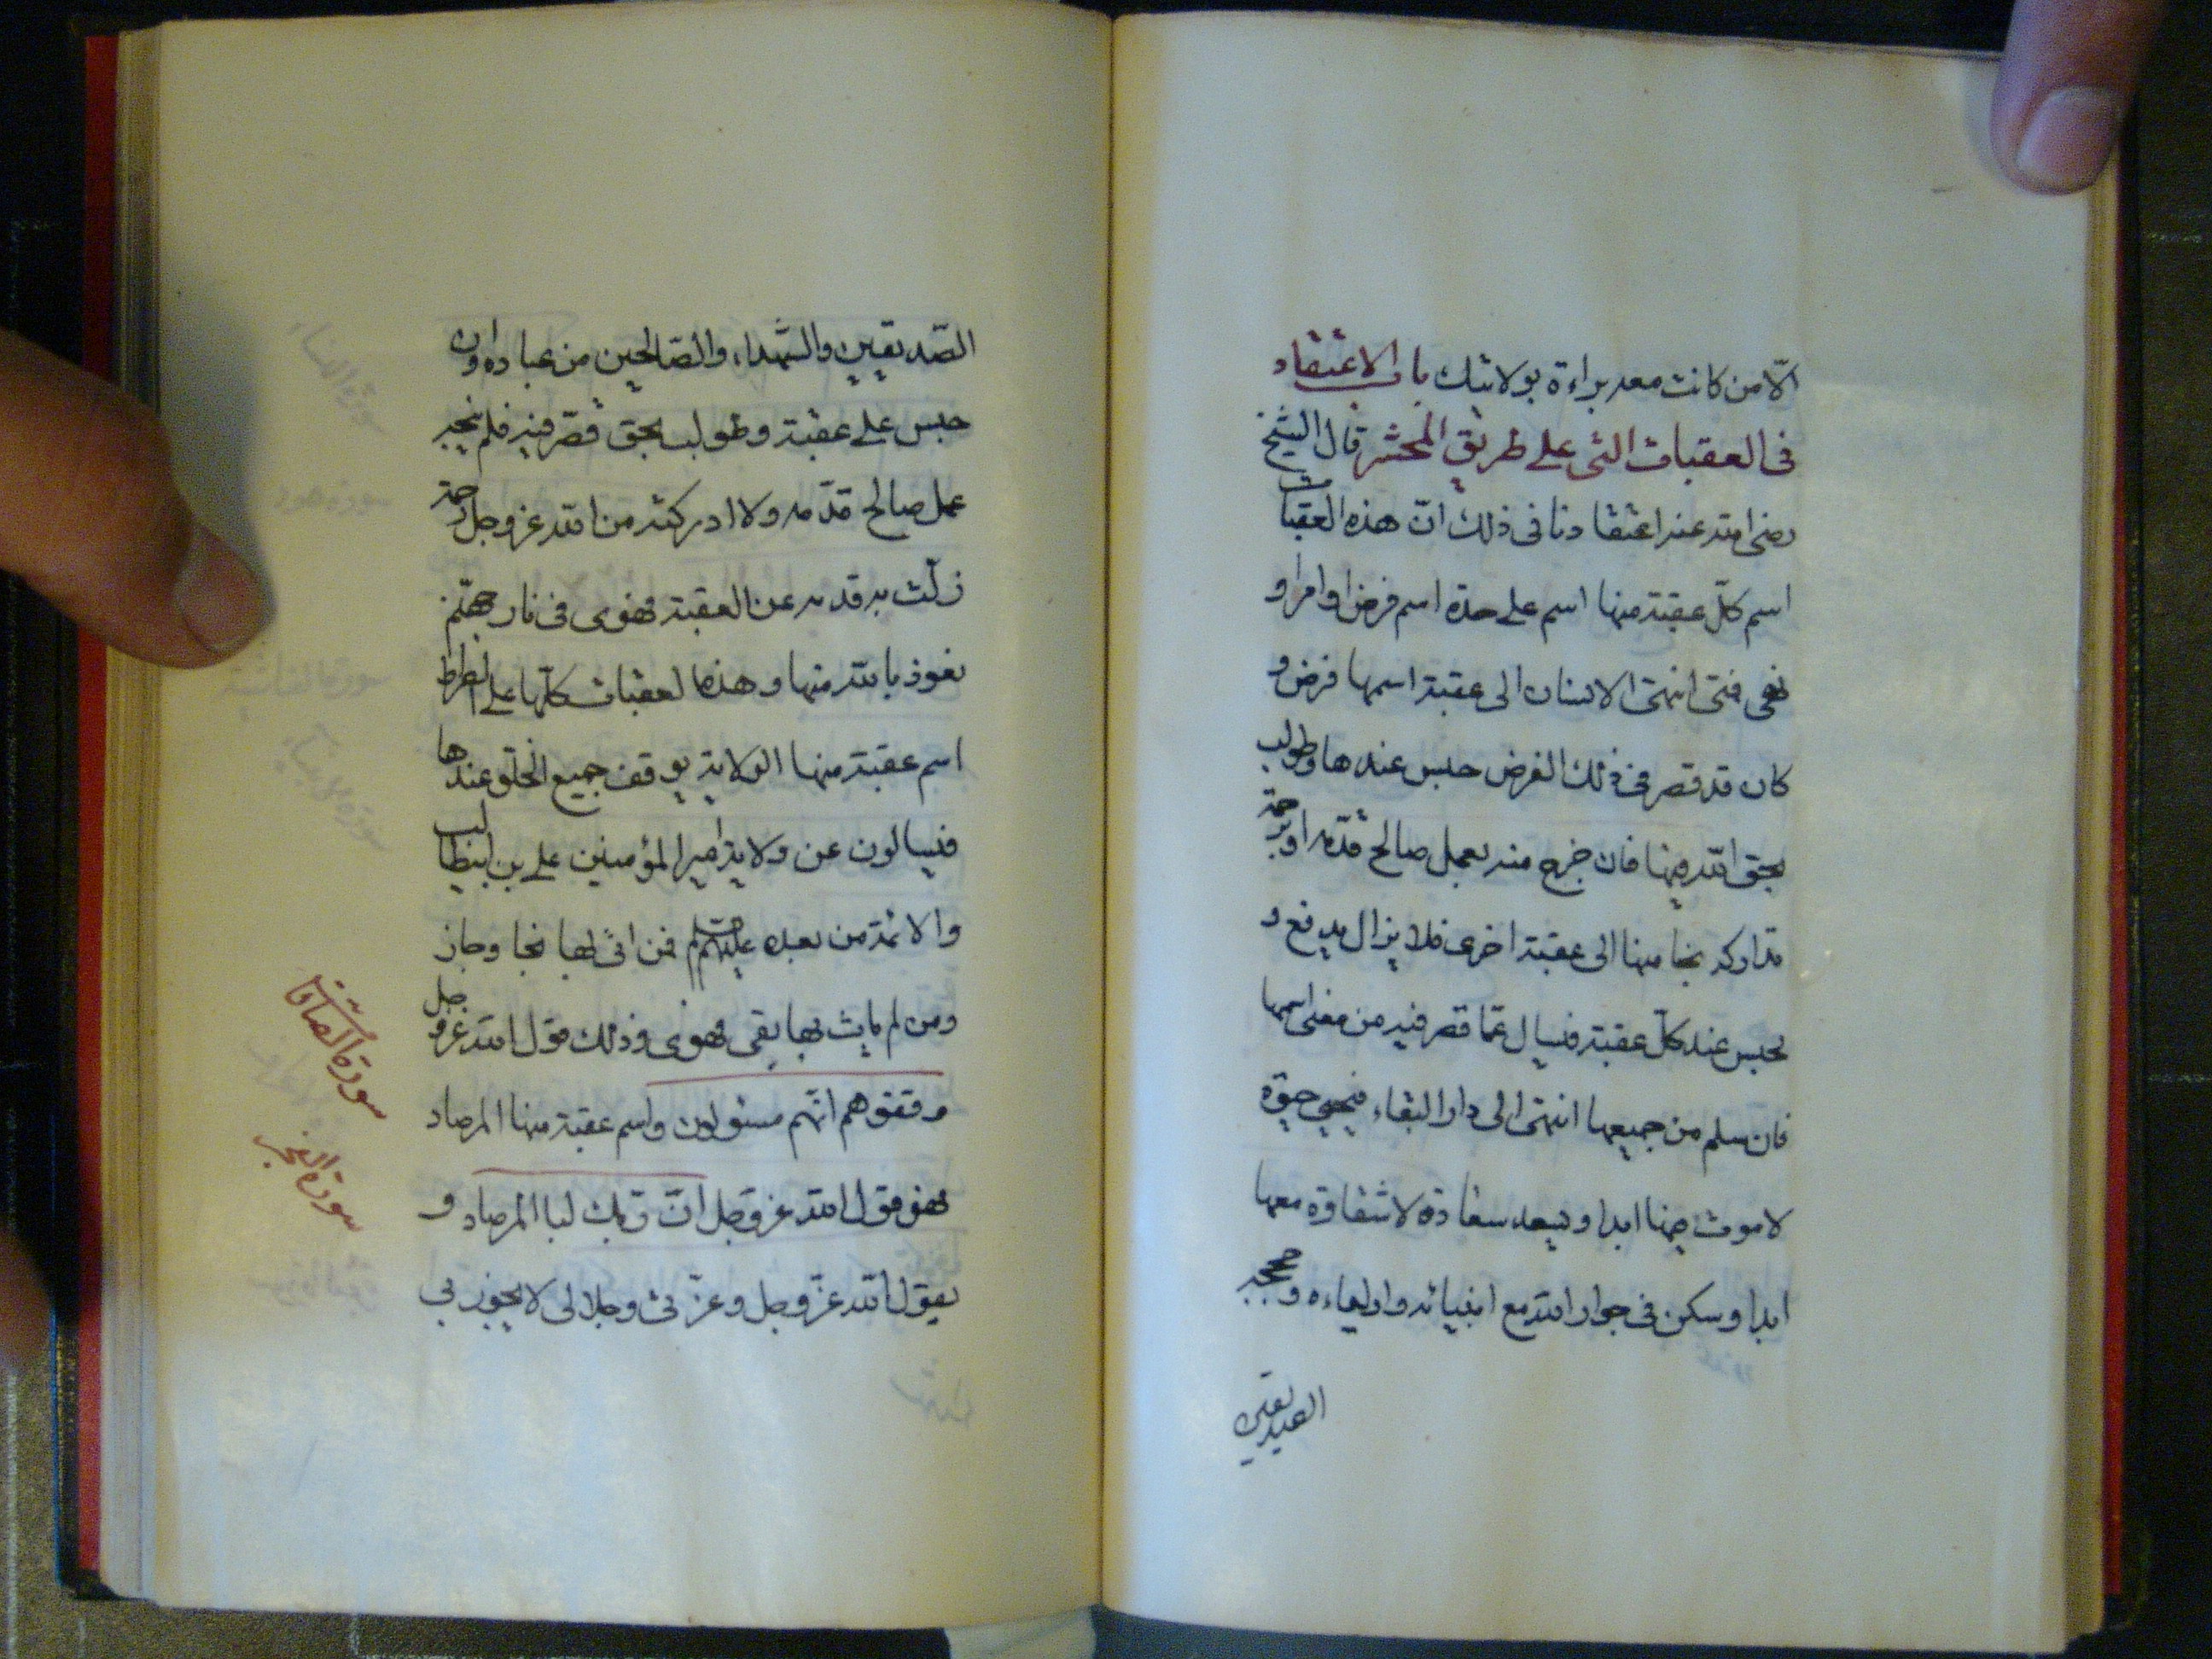 الّا من كانت معه براءة بولايتك باب الاعتقاد
فى العقبات التى على طريق المحشر قال الشيخ
رضى الله عنه اعتقادنا فى ذلك انّ هذه العقبات
اسم كلّ عقبة منها اسم على حدة اسم فرض او امر او
نهى فمتى انتهى الانسان الى عقبة اسمها فرض و
كان قد قصر فى ذلك الفرض حبس عندها وطولب
بحق الله فيها فان خرج منه بعمل صالح قدّمه او برحمة
تداركه نجا منها الى عقبة اخرى فلا يزال يدفع و
يحبس عند كلّ عقبة فيسال عمّا قصر فيه من معنى اسمها
فان سلم من جميعها انتهى الى دار البقاء فيحيى حيوة
لا موت فيها ابدا ويسعد سعادة لا شقاوة معها
ابدا وسكن فى جوار الله مع انبيائه واولياءه وحججه
الصديقين
الصّديقين والشهداء والصّالحين من عباده وان
حبس على عقبة وطولب بحق قصّر فيه فلم ينجه
عمل صالح قدّمه ولا ادركته من الله عز وجل رحمة
زلّت به قدمه عن العقبة فهوى فى نار جهنّم
نعوذ بالله منها وهذه العقبات كلّها على الصراط
اسم عقبة منها الولاية يوقف جميع الخلق عندها
فيسالون عن ولاية امير المؤمنين على بن ابيطالب
والائمة من بعده عليهم السلم فمن اتى بها نجا وجاز
ومن لم يات بها بقى فهوى وذلك قول الله عز وجل
وقفوهم انّهم مسئولون واسم عقبة منها المرصاد
فهو قول الله عز وجل انّ ربك لبا المرصاد و
يقول الله عزّ وجل وعزّتى وجلالى لا يجوز بى
سورة الصافات
سورة الفجر